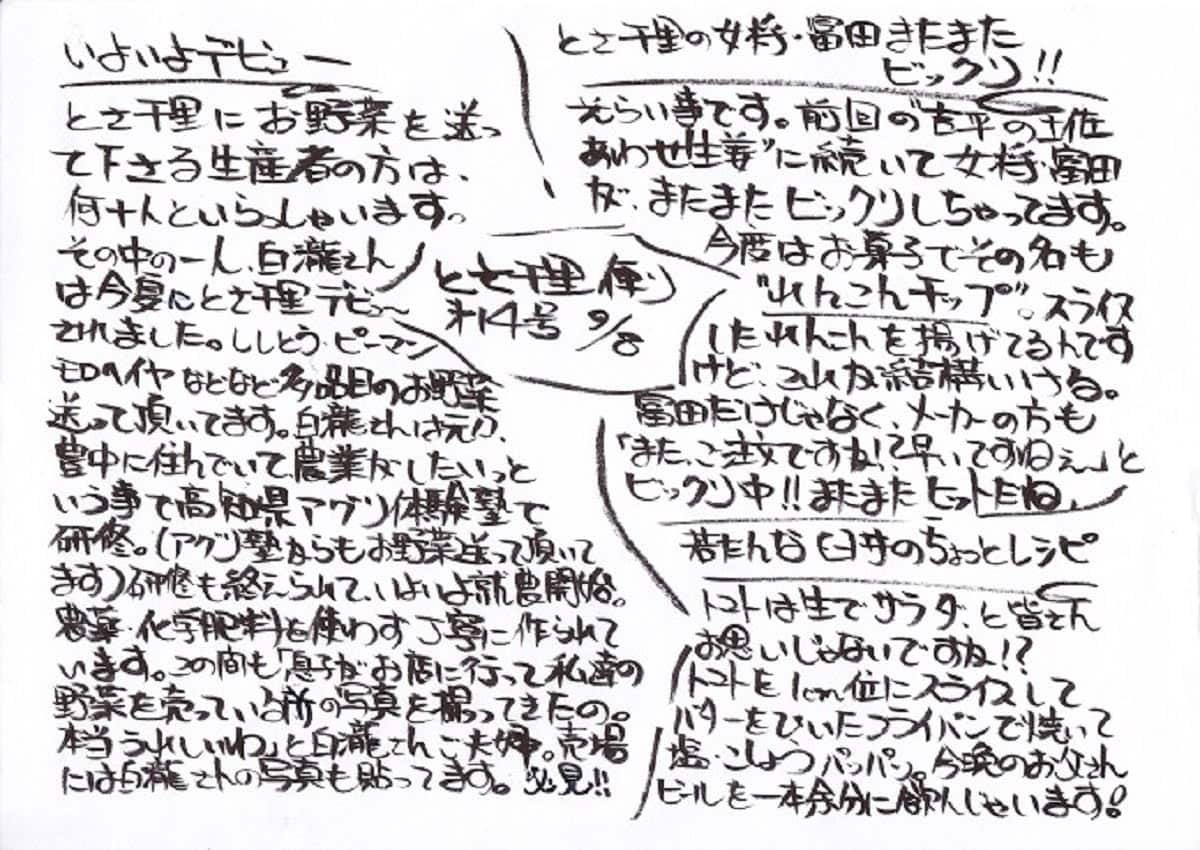 とさ千里便り
第14号 9/8
いよいよデビュー
とさ千里にお野菜を送っ
て下さる生産者の方は、
何十人といらっしゃいます。
その中の一人、白瀧さん
は今夏にとさ千里デビュー
されました。ししとう・ピーマン
モロヘイヤなどなど多品目のお野菜
送って頂いてます。白瀧さんは元々、
豊中に住んでいて農業がしたいっと
いう事で高知県アグリ体験塾で
研修。(アグリ塾からもお野菜送って頂いて
ます)研修も終えられて、いよいよ就農開始。
農薬・化学肥料を使わず丁寧に作られて
います。この間も「息子がお店に行って私達の
野菜を売っている所の写真を撮ってきたの。
本当うれしいわ」と白瀧さんご夫婦。売場
には白瀧さんの写真も貼ってます。必見!!
とさ千里の女将・富田またまた
ビックリ!!
えらい事です。前回の"吉平の土佐
あわせ生姜"に続いて女将・富田
が、またまたビックリしちゃってます。
今度はお菓子でその名も
"れんこんチップ"。スライス
したれんこんを揚げてるんです
けど、これが結構いける。
富田だけじゃなく、メーカーの方も
「また、ご注文ですね!?早いですねぇ〜」と
ビックリ中!!またまたヒットだね。
若だんな臼井のちょっとレシピ
トマトは生でサラダ、と皆さん
お思いじゃないですね!?
トマトを1cm位にスライスして
バターをひいたフライパンで焼いて
塩・こしょうパッパッ。今晩のお父さん
ビールを一本余分に飲んじゃいます!